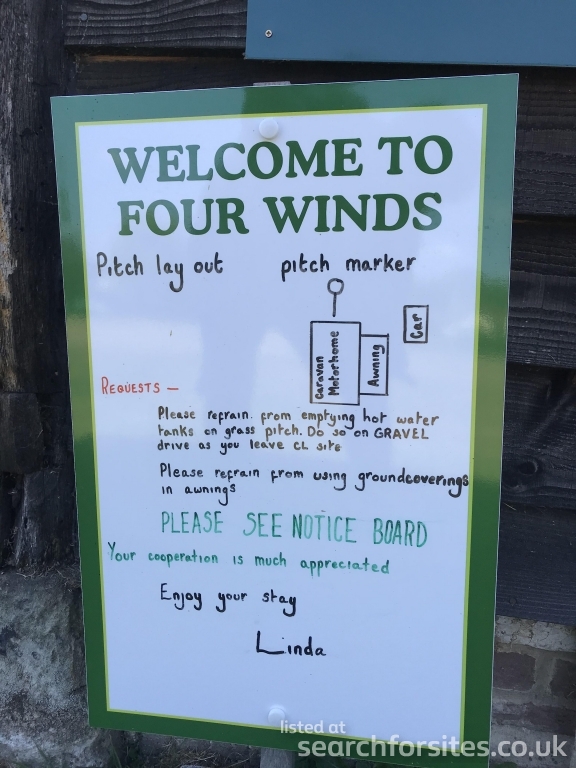 WELCOME TO
FOUR WINDS
Pitch lay out pitch marker
Caravan
Motorhome
Awning
Car
REQUESTS —
Please refrain from emptying hot water
tanks on grass pitch. Do so on GRAVEL
drive as you leave CL site
Please refrain from using groundcoverings
in awnings
PLEASE SEE NOTICE BOARD
Your cooperation is much appreciated
Enjoy your stay
Linda
listed at
searchforsites.co.uk